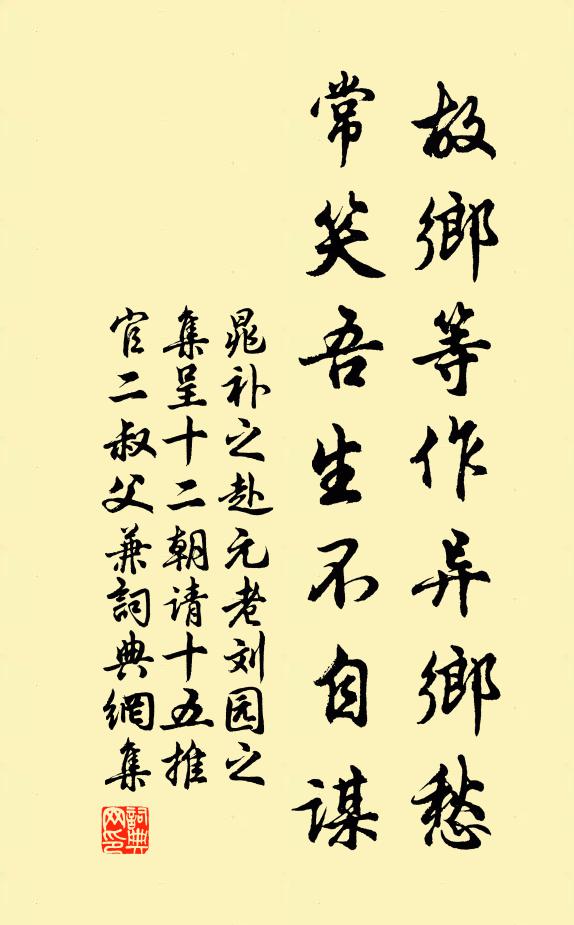 故鄉等作异鄉愁
常笑吾生不自谋
晁补之赴元老刘园之
集呈十二朝请十五推
官二叔父兼詞典網集
詞典網印